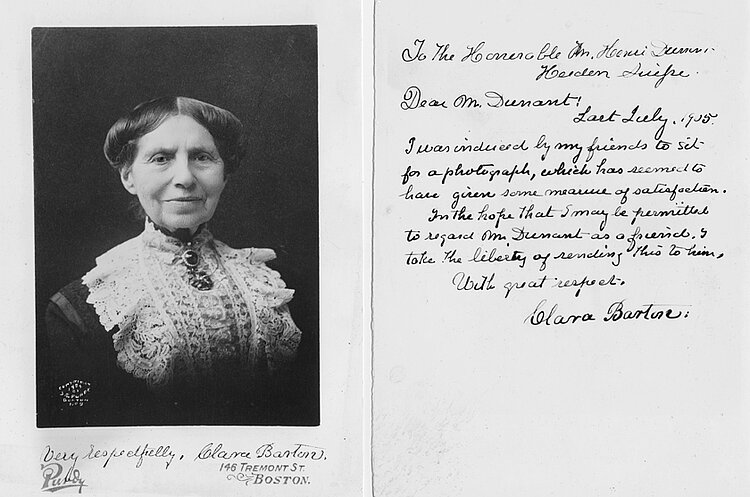 Very respectfully, Clara Barton.
Purdy
146 TREMONT ST.
BOSTON.
To the Honorable Mr. Henri Dunan
Heiden Suisse.
Dear Mr. Dunant!
Last July, 1905.
I was induced by my friends to sit
for a photograph, which has seemed to
have given some measure of satisfaction.
In the hope that I may be permitted
to regard Mr. Dunant as a friend. I
take the liberty of sending this to him,
With great respect.
Clara Barton.